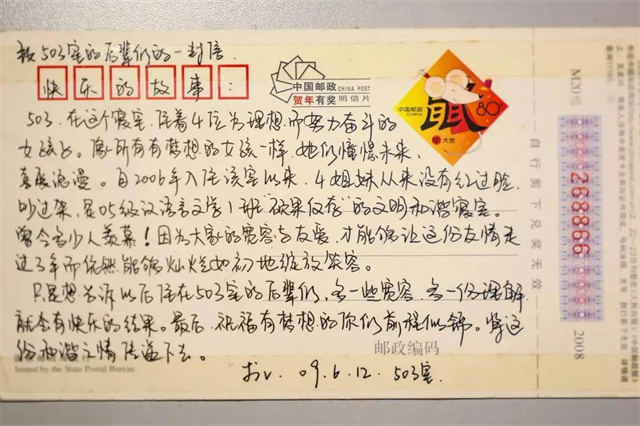 致503室的后辈们的一封信
快乐的故事：
中国邮政
CHINA POST
贺年有奖明信片
中国邮政
CHINA
80分
大吉
503,在这个寝室,住着4位为理想而努力奋斗的
女孩子。像所有有梦想的女孩一样,她们憧憬未来,
喜爱浪漫。自2006年入住该室以来,4姐妹从来没有红过脸,
吵过架,是05级汉语言文学1班"硕果仅存"的文明和谐寝室。
曾令多少人羡慕!因为大家的宽容与友爱,才能够让这份友情走
过3年而依然能够灿烂如初地绽放笑容。
只是想告诉以后住在503室的后辈们,多一些宽容,多一份理解
就会有快乐的结果。最后,祝福有梦想的你们前程似锦。将这
份和谐之情传递下去。
邮政编码
Issued by the State Postal Bureau
09.6.12. 503室.
自行剪下兑奖无效
M20组
268866
2008